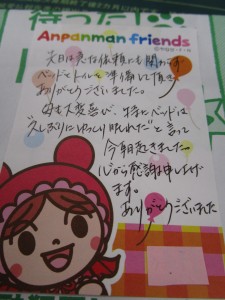 待った
Anpanman friends
先日は急な依頼にも関わらず
ベッドとトルを準備して頂き
ありがとうございました。
母も大変喜び、特にベッドは
"久しぶりにゆっくり眠れた"と言って
今朝起きました
心から感謝申し上げ
ます。
ありがとうございました